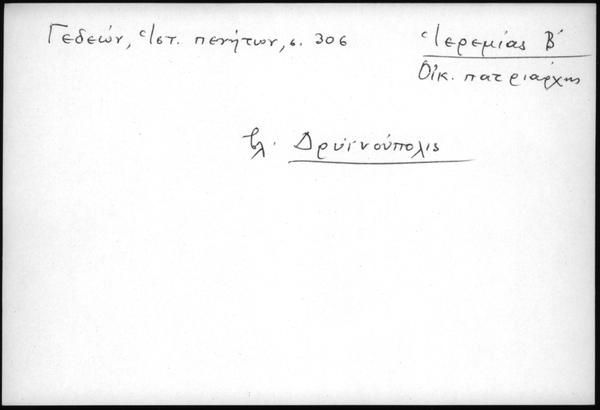 Γεδεών, Ἱστ. πενήτων, σ. 306
Ἱερεμίας Β΄
Οἰκ. πατριάρχης
βλ. Δρυϊνούπολις